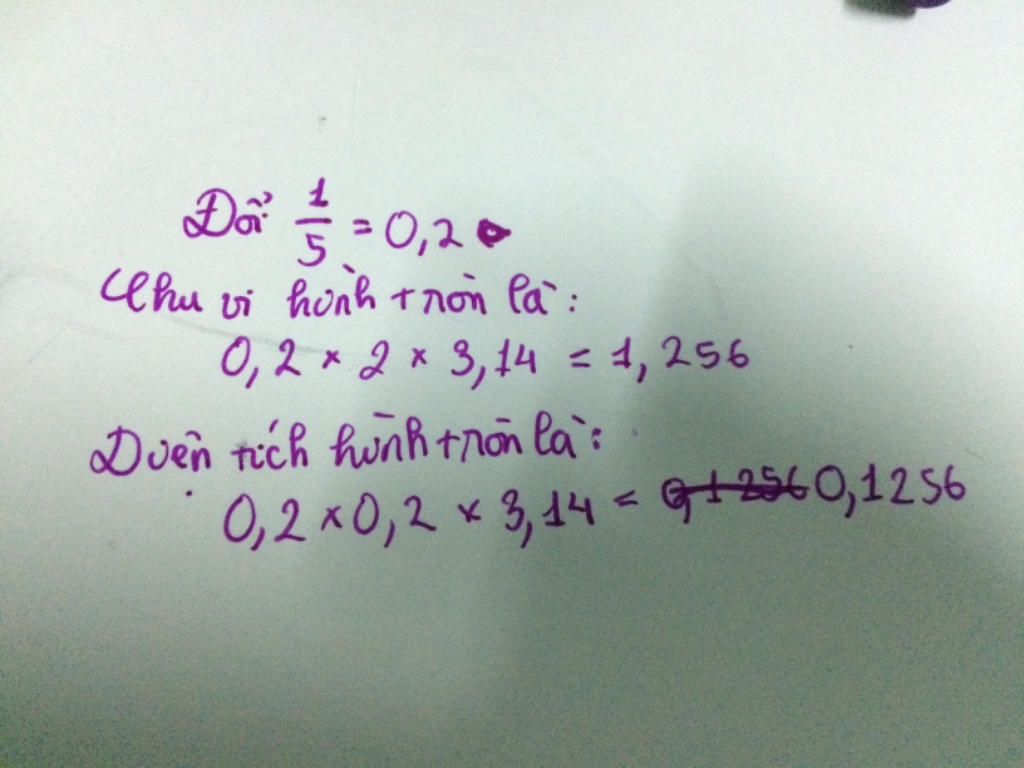 Đổi 1/5 = 0,2
Chu vi hình tròn là:
0,2 × 2 × 3,14 = 1,256
Diện tích hình tròn là:
0,2 × 0,2 × 3,14 = 0,1256 0,1256